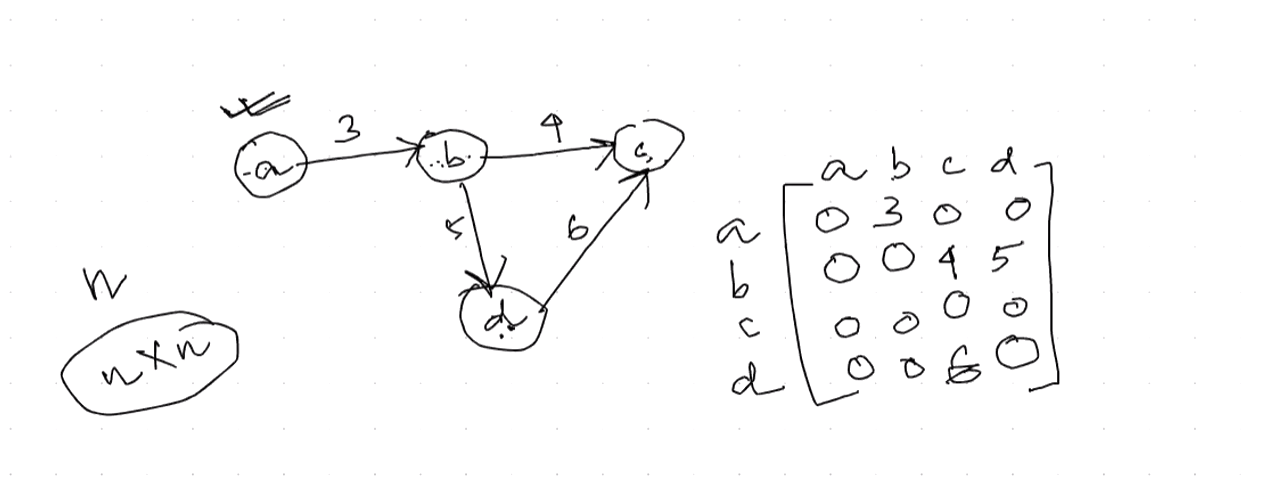 3
4
a
b
c
5
6
d
n
n×n
a b c d
a 0 3 0 0
b 0 0 4 5
c 0 0 0 0
d 0 0 6 0